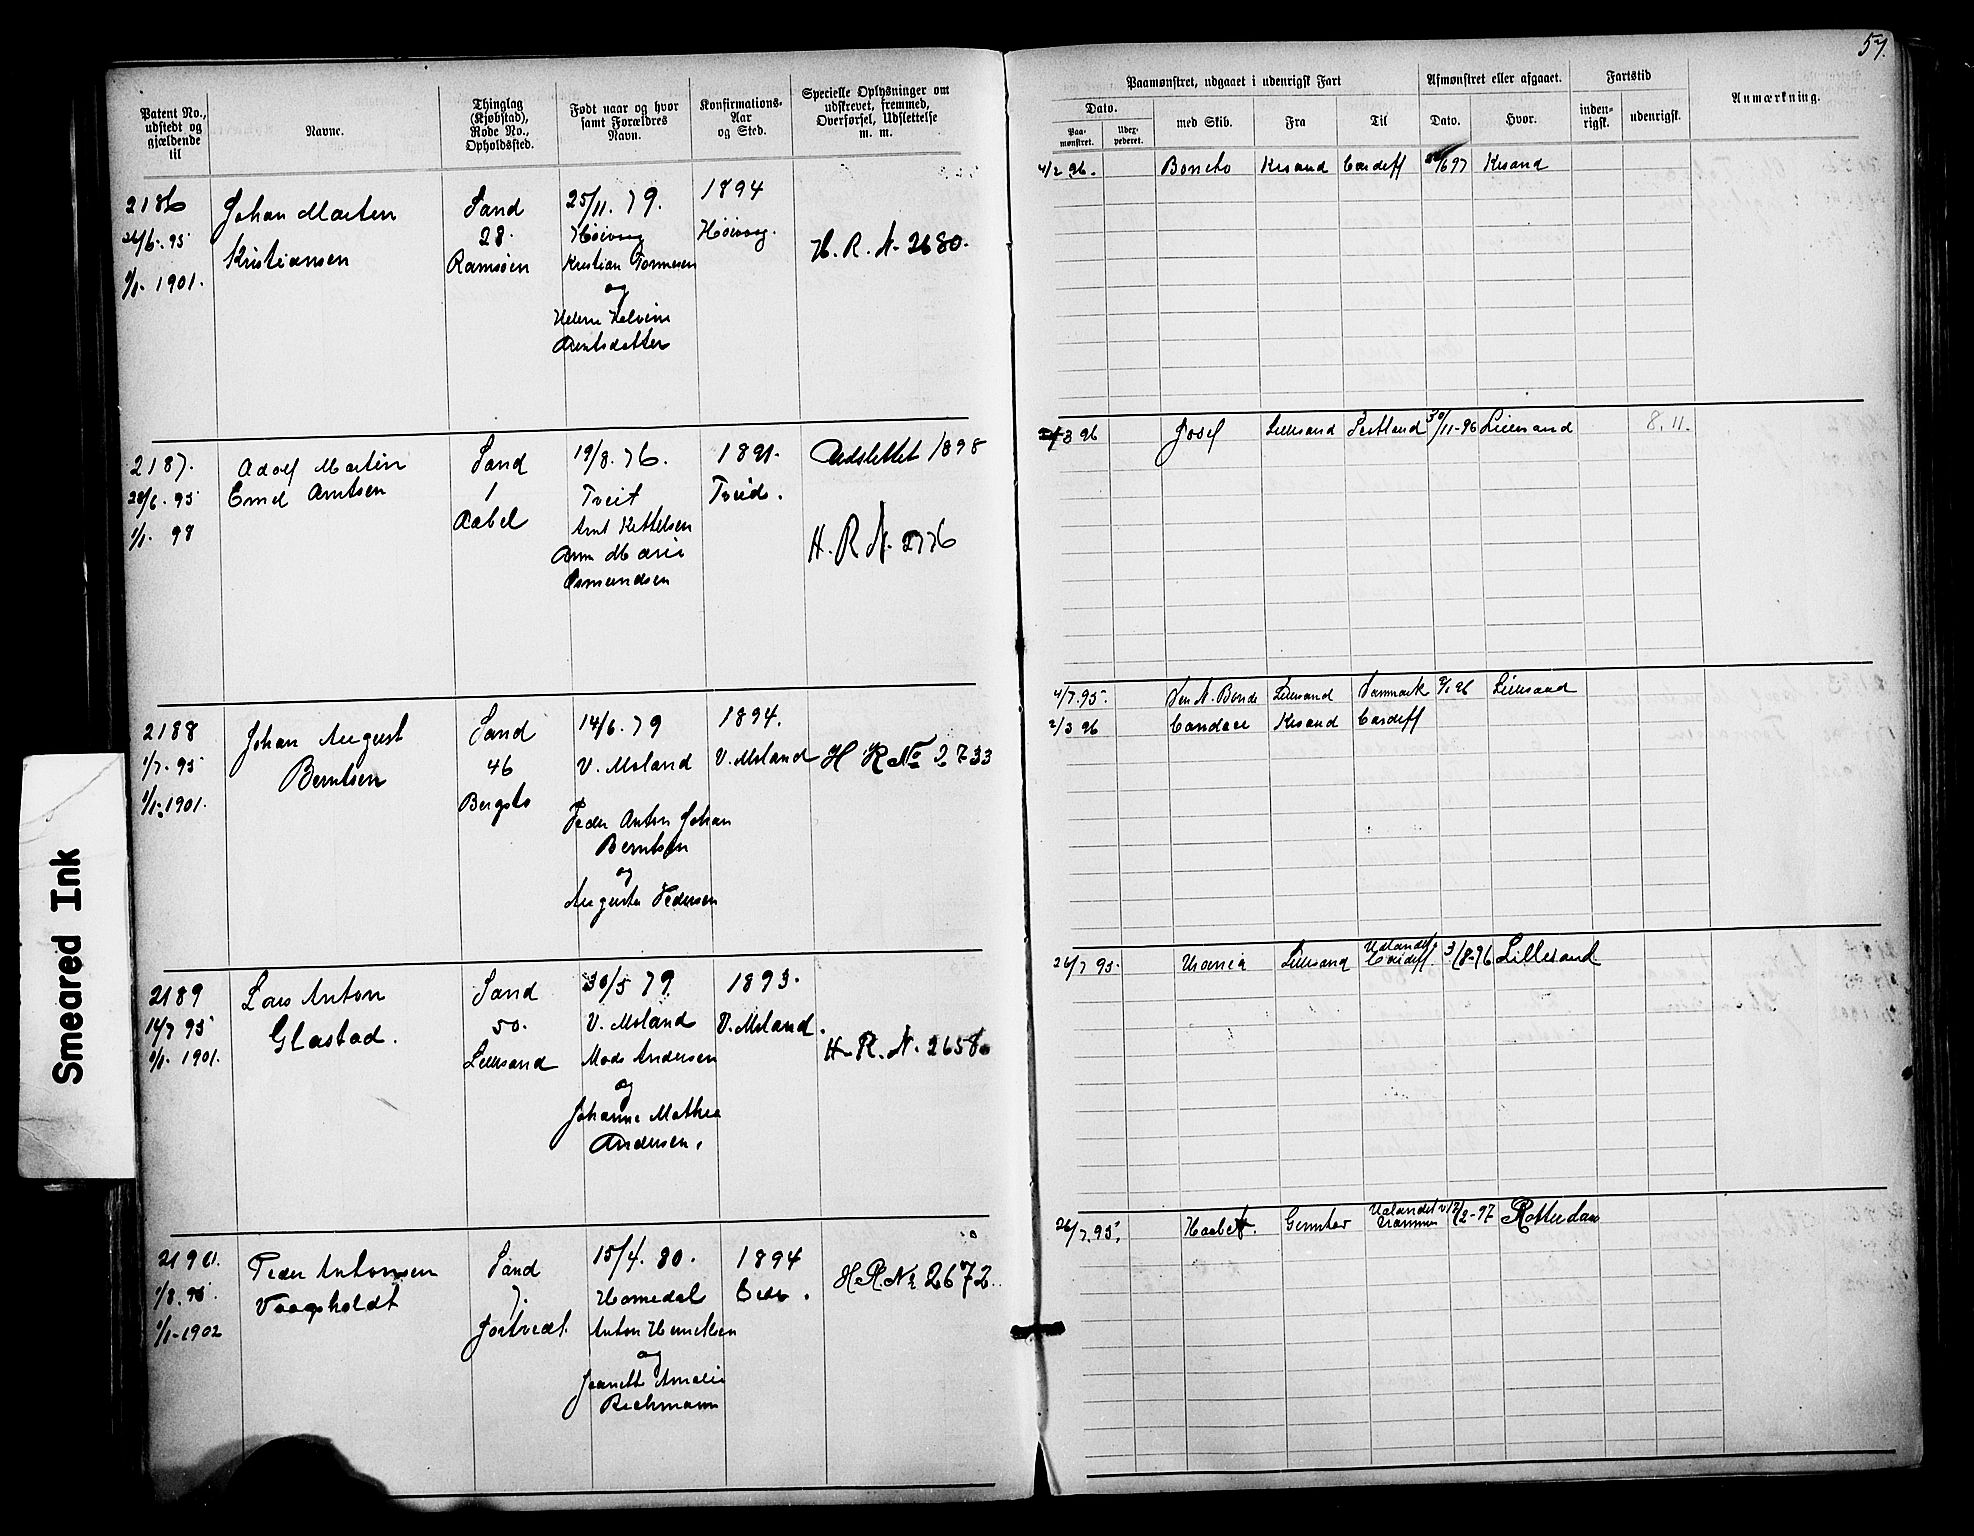 57.
Patent No., udstedt og gjældende til
Navne.
Thinglag (Kjøbstad), Rode No., Opholdssted.
Født naar og hvor samt Forældres Navn.
Konfirmations-Aar og Sted.
Specielle Oplysninger om udskrevet, fremmed, Overførsel, Udslettelse m. m.
Paamønstret, udgaaet i udenrigsk Fart
Afmønstret eller afgaaet.
Fartstid
Anmærkning.
Dato.
Paa-mønstret.
Udex-pederet.
med Skib.
Fra
Til
Dato.
Hvor.
inden-rigsk.
udenrigsk.
2186
26/6. 95
1/1. 1901.
Johan Marten
Kristiansen
Sand
28.
Ramsøen
25/11. 79.
Høivaag
Kristian
og
Arntsdatter
1894
Høivaag.
H. R. N. 2680.
4/2 96.
Kesand
Cardeff
Kesand
2187.
28/6. 95
1/1. 98
Adolf Martin
Emil Arntsen
Sand
1
Aabel
19/8. 76.
Tveit
Arnt Kettelsen
Ann Marie
Osmundsen
1891.
Tveid.
Udslettet 1898
H. R. N. 2776
3 96
Josef
Lillesand
30/11-96
Lillesand
8. 11.
2188
1/7. 95
1/1. 1901.
Johan August
Berntsen
Sand
46
Bergsto
14/6. 79
V. Moland
Peder Anton Johan
Berntsen
og
Augusta Pedersen
1894.
V. Moland
H R No 2733
4/7. 95.
Lillesand
Danmark
Lillesand
2/3 96
Candace
Kesand
Cardeff
2189
14/7 95
1/1. 1901.
Lars Anton
Glastad.
Sand
50.
Lillesand
30/5 79
V. Moland
Mads Andersen
og
Johanne Mathea
Andersen.
1893.
V. Moland.
H. R. N. 2658
26/7 95.
Urania
Lillesand
Udlandet
Cardeff.
3/8-96
Lillesand
2190.
1/8. 95.
1/1-1902
Peder Antonsen
Vaagsholdt
Sand
7.
Jortvedt
15/4. 80.
Homedal
Anton Henriksen
og
Jeanette Amalie
Reichmann
1894
Eide.
H. R. No 2672.
26/7. 95.
Haabet.
Udlandet
12/2-97
Rotterdam
Smeared Ink